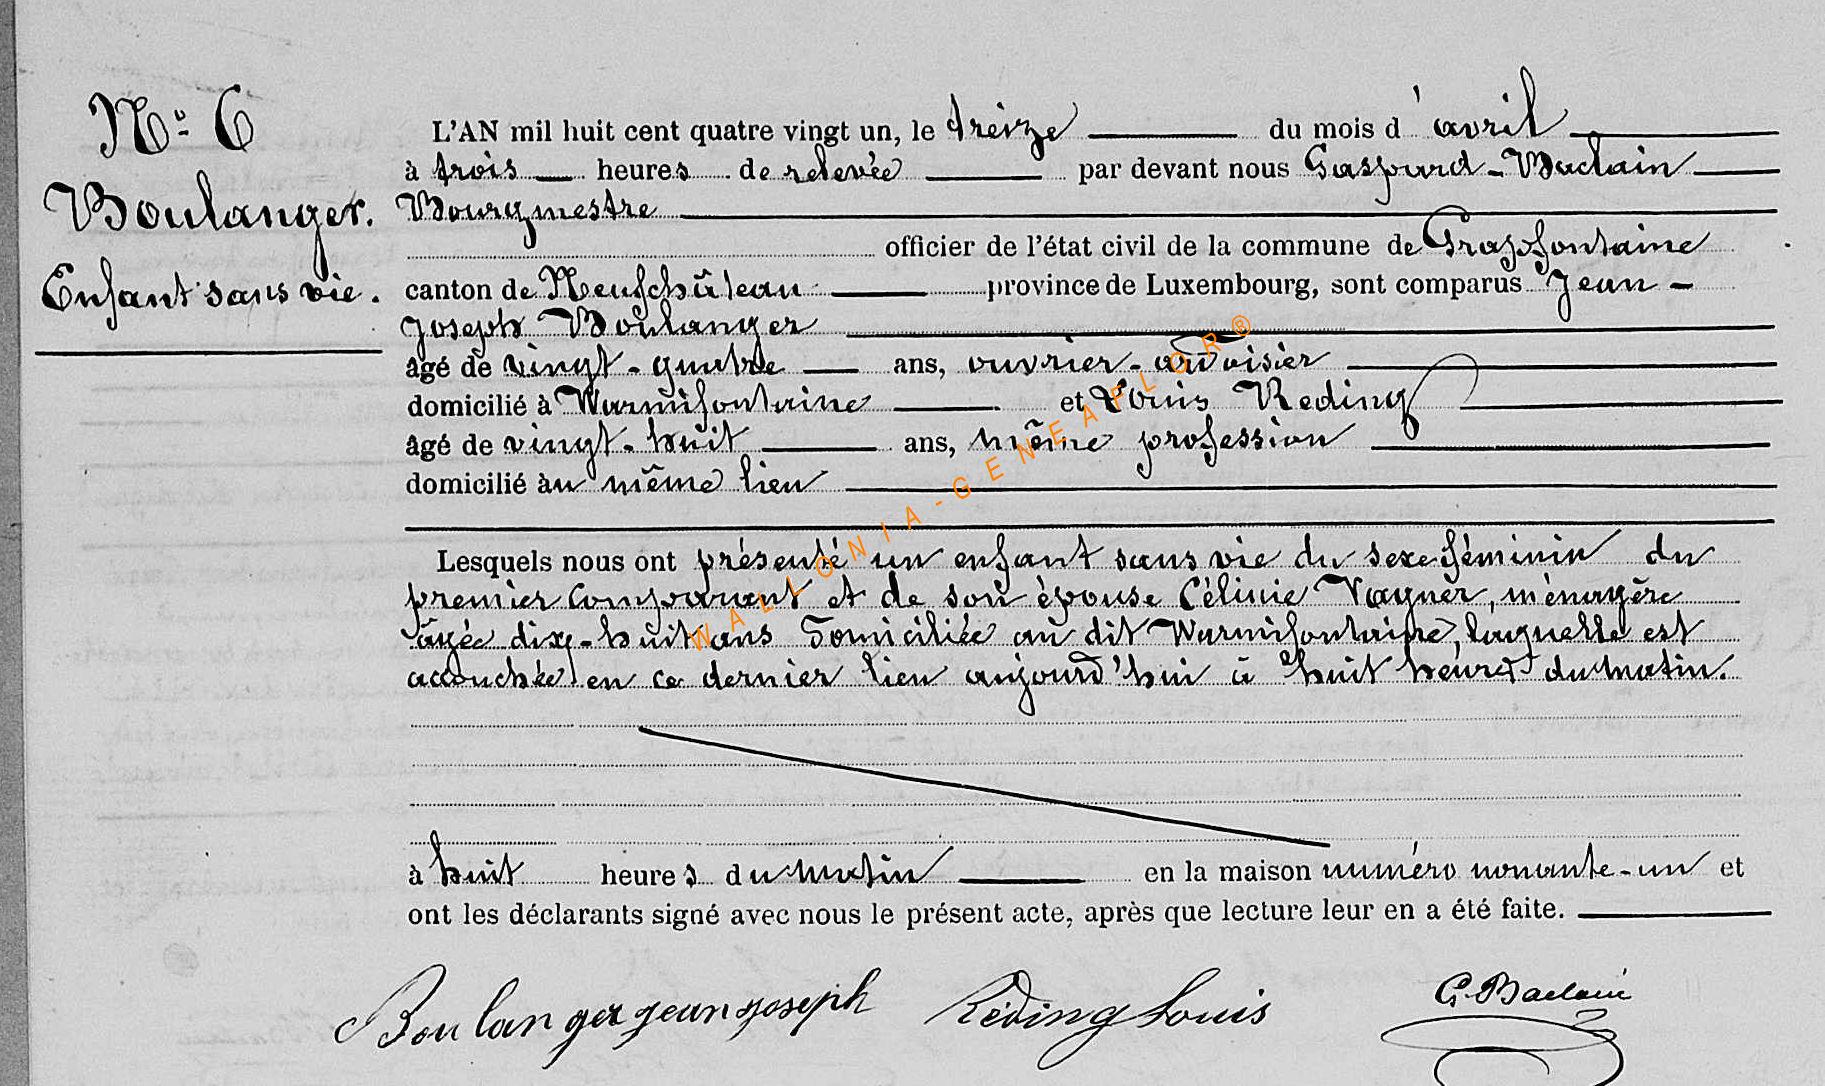 Nº 6
Boulanger.
Enfant sans vie.
L'AN mil huit cent quatre vingt un, le treize du mois d'avril
à trois heures de relevée par devant nous Gaspard-Baclain
Bourgmestre
officier de l'état civil de la commune de Grapfontaine
canton de Neufchâteau province de Luxembourg, sont comparus Jean-
Joseph Boulanger
âgé de vingt-quatre ans, ouvrier-ardoisier
domicilié à Warmifontaine et Louis Reding
âgé de vingt-huit ans, même profession
domicilié au même lieu
Lesquels nous ont présenté un enfant sans vie du sexe féminin du
premier comparant et de son épouse Célinie Wagner, ménagère
âgée dix-huit ans domiciliée au dit Warmifontaine laquelle est
accouchée en ce dernier lieu aujourd'hui à huit heures du matin.
à huit heures du matin en la maison numéro nonante-un et
ont les déclarants signé avec nous le présent acte, après que lecture leur en a été faite.
Boulanger jean joseph Réding Louis G. Baclain
WALLONIA-GENEAFLOR®